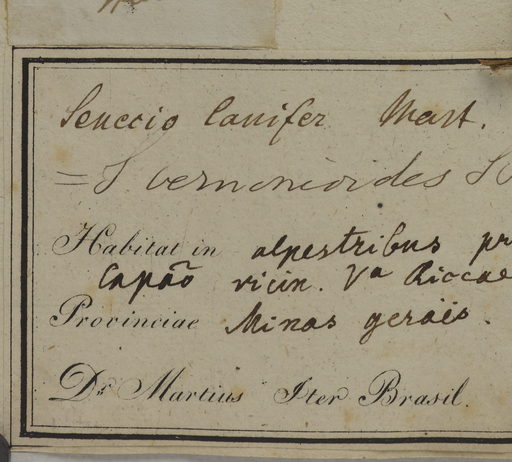 Senecio lanifer Mart.
= S. vernonioides
Habitat in alpestribus pr
Capão vicin. Va Riccae
Provinciae Minas geraës.
Dr. Martius Iter Brasil.